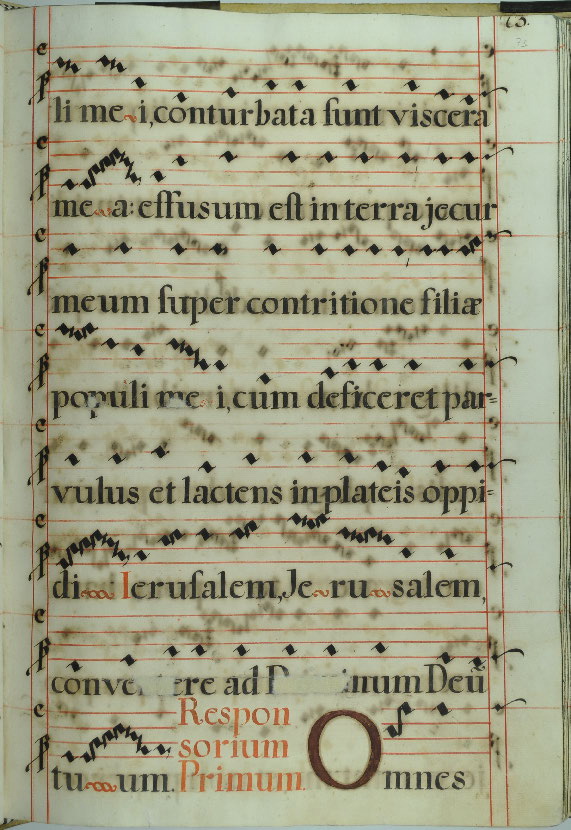 73.
73
li me~i, conturbata sunt viscera
me~a: effusum est in terra jecur
meum super contritione filiæ
populi me i, cum deficeret par=
vulus et lactens in plateis oppi=
di~ Ierusalem, Je~ru~salem,
ere ad Deū
Respon
sorium
tu~um. Primum. Omnes